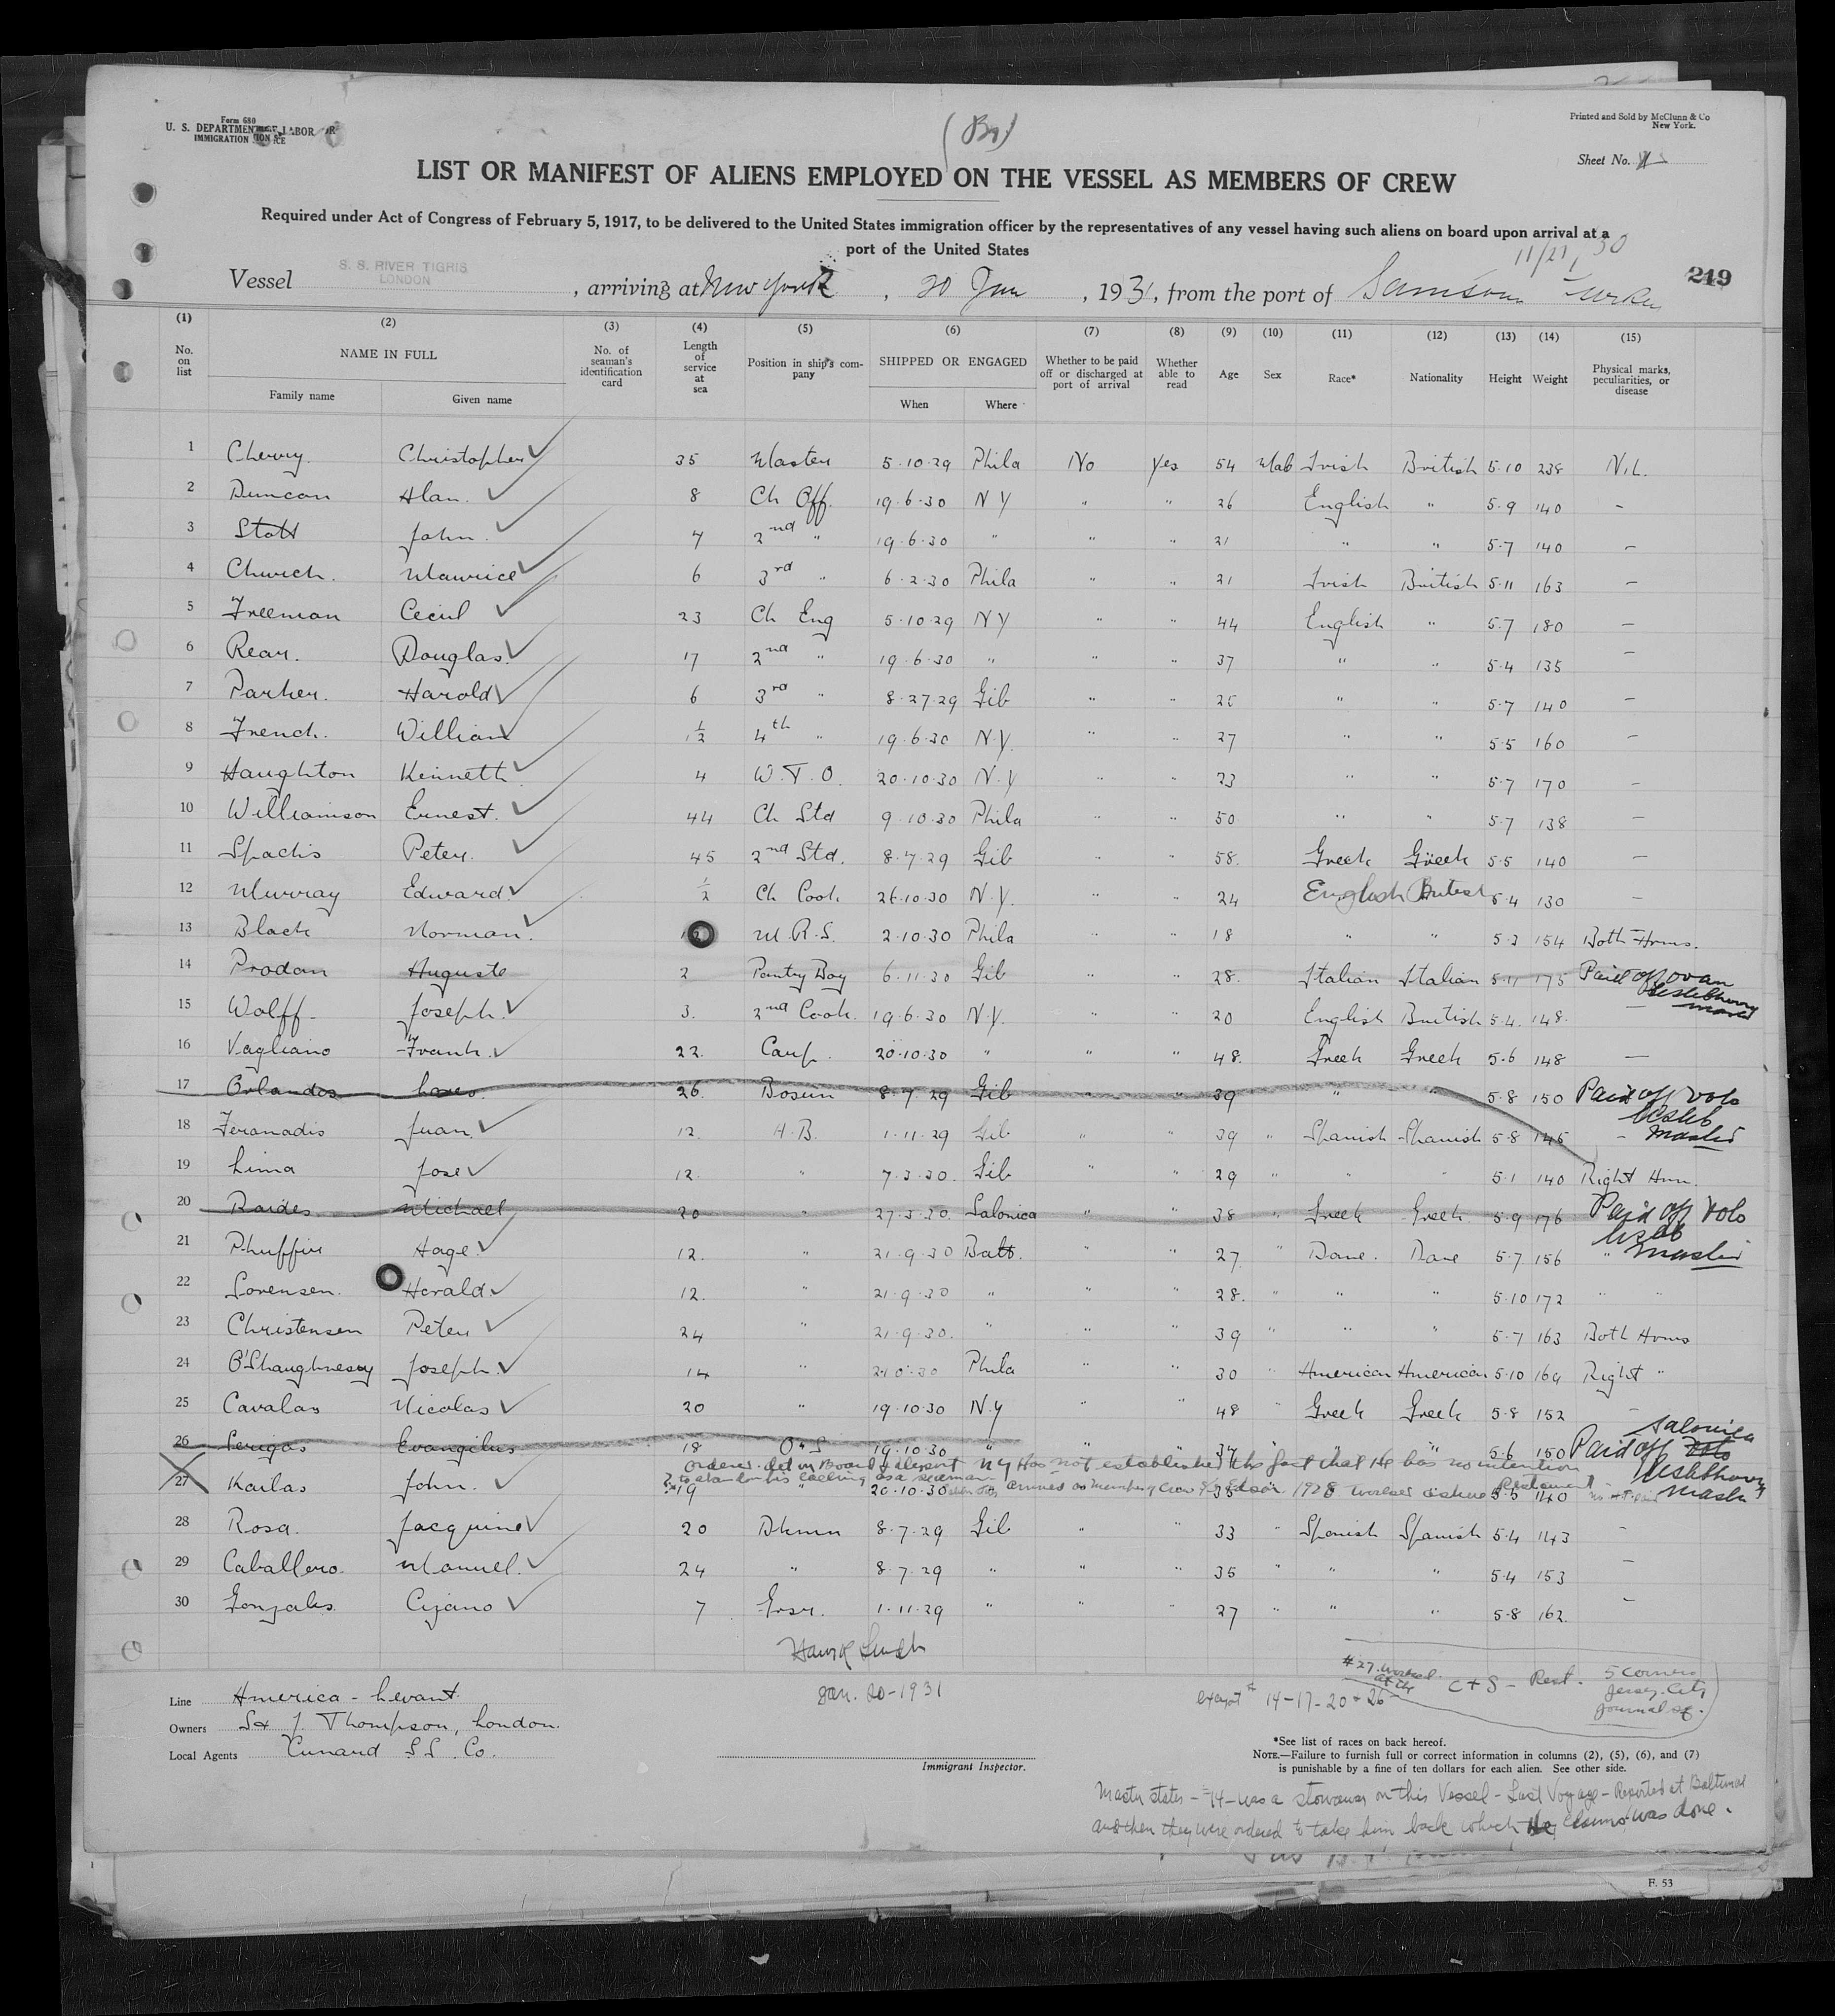 Form 680
U. S. DEPARTMENT OF LABOR
IMMIGRATION
(Br)
Printed and Sold by McClunn & Co
New York.
Sheet No. 1
LIST OR MANIFEST OF ALIENS EMPLOYED ON THE VESSEL AS MEMBERS OF CREW
Required under Act of Congress of February 5, 1917, to be delivered to the United States immigration officer by the representatives of any vessel having such aliens on board upon arrival at a
port of the United States
11/21/30
249
Vessel S. S. RIVER TIGRIS LONDON, arriving at New York, 20 Jan, 1931, from the port of Samsoun Turkey
(1) (2) (3) (4) (5) (6) (7) (8) (9) (10) (11) (12) (13) (14) (15)
No. on list NAME IN FULL No. of seaman's identification card Length of service at sea Position in ship's company SHIPPED OR ENGAGED Whether to be paid off or discharged at port of arrival Whether able to read Age Sex Race* Nationality Height Weight Physical marks, peculiarities, or disease
Family name Given name When Where
1 Cherry. Christopher 35 Master 5.10.29 Phila No Yes 54 Male Irish British 5.10 238 NiL.
2 Duncan Alan. 8 Ch Off. 19.6.30 N Y " " 26 English " 5.9 140 -
3 Stott John. 4 2nd " 19.6.30 " " " 21 " " 5.7 140 -
4 Church. Maurice 6 3rd " 6.2.30 Phila " " 21 Irish British 5.11 163 -
5 Freeman Cecil 23 Ch Eng 5.10.29 N Y " " 44 English " 5.7 180 -
6 Rear. Douglas. 17 2nd " 19.6.30 " " " 37 " " 5.4 135 -
7 Parker. Harold 6 3rd " 8.27.29 Gib " " 25 " " 5.7 140 -
8 French. William 1/2 4th " 19.6.30 N.Y. " " 27 " " 5.5 160 -
9 Haughton Kenneth 4 W.T.O. 20.10.30 N.Y " " 23 " " 5.7 170 -
10 Williamson Ernest. 44 Ch Std 9.10.30 Phila " " 50 " " 5.7 138 -
11 Spachis Peter. 45 2nd Std. 8.7.29 Gib " " 58. Greek Greek 5.5 140 -
12 Murray Edward. 1/2 Ch Cook 26.10.30 N.Y. " " 24 English British 5.4 130 -
13 Black Norman. M.R.S. 2.10.30 Phila " " 18 " " 5.3 154 Both Arms.
14 Prodan Auguste 2 Pantry Boy 6.11.30 Gib " " 28. Italian Italian 5.11 175 Paid off
15 Wolff Joseph. 3. 2nd Cook. 19.6.30 N.Y. " " 20 English British 5.4. 148. -
16 Vagliano Frank. 22. Carp. 20.10.30 " " " 48. Greek Greek 5.6 148 -
17 Orlandos 26. Bosun 8.7.29 Gib " " 39 " " 5.8 150 Paid off Volo
Master
18 Feranadis Juan. 12. A.B. 1.11.29 Gib " " 39 " Spanish Spanish 5.8 145 -
19 Lima Jose 12. " 7.3.30. Gib " " 29 " " " 5.1 140 Right Arm.
20 Raides Michael 20 " 27.3.30. Salonica " " 38 " Greek Greek. 5.9 176 Paid off Volo
Master
21 Aage. 12. " 21.9.30 Balt. " " 27 " Dane. Dane 5.7 156 "
22 Sorensen. Harald. 12. " 21.9.30 " " " 28. " " " 5.10 172 " "
23 Christensen Peter 24 " 21.9.30. " " " 39 " " " 5.7 163 Both Arms
24 O'Shaughnessy Joseph. 14 " Phila " " 30 " American American 5.10 169 Right "
25 Cavalas Nicolas 20 " 19.10.30 N.Y " " 48 " Greek Greek 5.8 152 -
26 Perigos Evangilus 18 O.S 19.10.30 " " " 37 " " " 5.6 150 Paid off Salonica
Master
Ordered det in Board & deport NY Has not established the fact that He has no intention
to abandon his calling as a seaman
27 Karlas John. 19 " 20.10.30 35 5.5 140
28 Rosa. Jacquine 20 Dkmn 8.7.29 Gib " " 33 " Spanish Spanish 5.4 143 -
29 Caballero. Manuel. 24 " 8.7.29 " " " 35 " " " 5.4 153 -
30 Gonzales Cizano 7 Grsr. 1.11.29 " " " 27 " " " 5.8 162. -
Jan. 20-1931
#27 worked at the
except # 14-17-20 & 26
C & S - Rest.
5 Corners
Jersey City
Journal Sq.
Line America - Levant
Owners S & J. Thompson, London.
Local Agents Cunard S.S. Co.
Immigrant Inspector.
*See list of races on back hereof.
NOTE.—Failure to furnish full or correct information in columns (2), (5), (6), and (7)
is punishable by a fine of ten dollars for each alien. See other side.
Master states - #14 - was a stowaway on this Vessel - Last Voyage - Reported at Baltimore
and then they were ordered to take him back which He claims was done.
F. 53